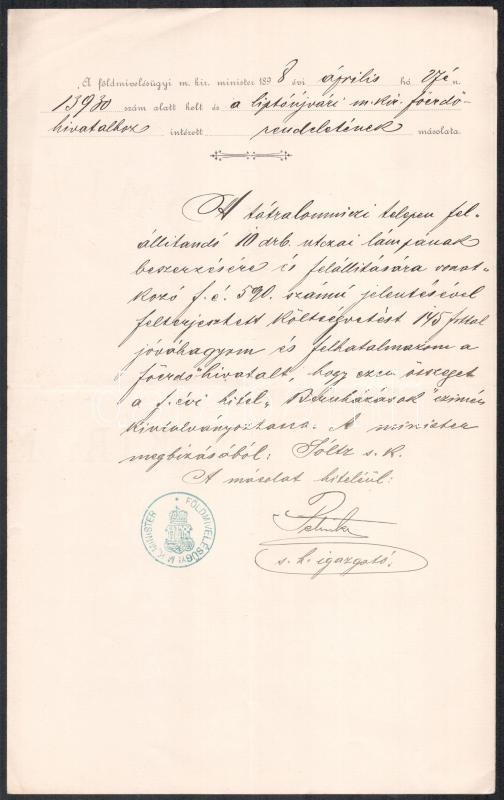 A földmivelésügyi m. kir. minister 1898 évi április hó 27én
13930 szám alatt kelt és a liptóújvári m. kir. főerdő-
hivatalhoz intézett rendeletének másolata.
A tátralomniczi telepen fel-
állitandó 10 drb. utczai lámpának
beszerzésére és felállitására vonat-
kozó f. é. 590. számú jelentésével
felterjesztett költségvetést 145 frttal
jóváhagyom és felhatalmazom a
főerdőhivatalt, hogy ezen összeget
a f. évi hitel „Beruházások" czimén
kiutalványoztassa. A minister
megbizásából: Soltz s. k.
A másolat hiteléül:
s. h. igazgató.
FÖLDMIVELÉSÜGYI M. K. MINISTER